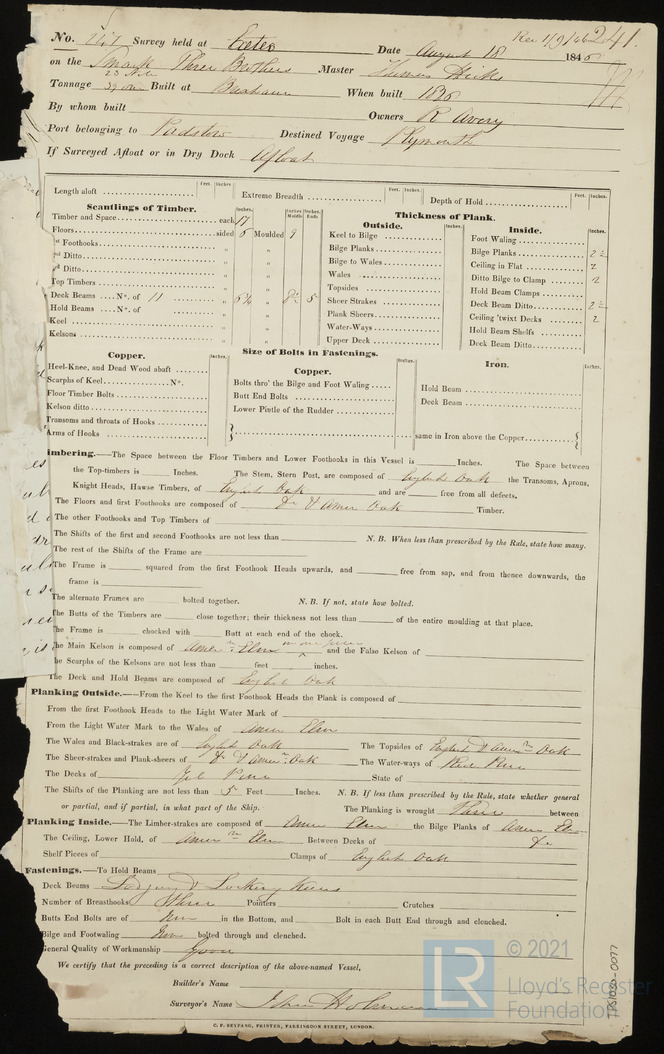 No. Survey held at Exeter Date August 18 1846 Rec 1/9/46 241.
on the Smack Three Brothers Master Thomas Hicks
Tonnage Built at Brixham When built 1836
By whom built Owners R Avery
Port belonging to Padstow Destined Voyage Plymouth
If Surveyed Afloat or in Dry Dock Afloat
Length aloft Feet. Inches. Extreme Breadth Feet. Inches. Depth of Hold Feet. Inches.
Scantlings of Timber.
Inches. Inches Middle Inches Ends
Timber and Space each 17
Floors sided 6 Moulded 9
1st Foothooks "
2nd Ditto "
Ditto "
Top Timbers "
Deck Beams No. of 11 " 6¼ " 5
Hold Beams No. of "
Keel "
Kelsons "
Thickness of Plank.
Outside. Inches.
Keel to Bilge
Bilge Planks
Bilge to Wales
Wales
Topsides
Sheer Strakes
Plank Sheers
Water-Ways
Upper Deck
Inside. Inches.
Foot Waling
Bilge Planks 2½
Ceiling in Flat 2
Ditto Bilge to Clamp 2
Hold Beam Clamps
Deck Beam Ditto 2½
Ceiling 'twixt Decks 2
Hold Beam Shelfs
Deck Beam Ditto
Size of Bolts in Fastenings.
Copper. Inches.
Heel-Knee, and Dead Wood abaft
Scarphs of Keel No.
Floor Timber Bolts
Kelson ditto
Transoms and throats of Hooks
Arms of Hooks
Copper. Inches.
Bolts thro' the Bilge and Foot Waling
Butt End Bolts
Lower Pintle of the Rudder
Iron. Inches.
Hold Beam
Deck Beam
same in Iron above the Copper
imbering.—The Space between the Floor Timbers and Lower Foothooks in this Vessel is Inches. The Space between
the Top-timbers is Inches. The Stem, Stern Post, are composed of English Oak the Transoms, Aprons,
Knight Heads, Hawse Timbers, of English Oak and are free from all defects.
The Floors and first Foothooks are composed of Do & Amer Oak Timber.
The other Foothooks and Top Timbers of
The Shifts of the first and second Foothooks are not less than N. B. When less than prescribed by the Rule, state how many.
The rest of the Shifts of the Frame are
The Frame is squared from the first Foothook Heads upwards, and free from sap, and from thence downwards, the
frame is
The alternate Frames are bolted together. N. B. If not, state how bolted.
The Butts of the Timbers are close together; their thickness not less than of the entire moulding at that place.
The Frame is chocked with Butt at each end of the chock.
The Main Kelson is composed of Amern Elm in one piece and the False Kelson of
The Scarphs of the Kelsons are not less than feet inches.
The Deck and Hold Beams are composed of English Oak
Planking Outside.—From the Keel to the first Foothook Heads the Plank is composed of
From the first Foothook Heads to the Light Water Mark of
From the Light Water Mark to the Wales of Amer Elm
The Wales and Black-strakes are of English Oak The Topsides of English & Amern Oak
The Sheer-strakes and Plank-sheers of Do & Amern Oak The Water-ways of Red Pine
The Decks of Yel Pine State of
The Shifts of the Planking are not less than 5 Feet Inches. N. B. If less than prescribed by the Rule, state whether general
or partial, and if partial, in what part of the Ship. The Planking is wrought Three between
Planking Inside.—The Limber-strakes are composed of Amer Elm the Bilge Planks of Amer Elm
The Ceiling, Lower Hold, of Amern Elm Between Decks of Do
Shelf Pieces of Clamps of English Oak
Fastenings.—To Hold Beams
Deck Beams Lodging & Knees
Number of Breasthooks Three Pointers Crutches
Butts End Bolts are of Iron in the Bottom, and Bolt in each Butt End through and clenched.
Bilge and Footwaling Iron bolted through and clenched.
General Quality of Workmanship Good
We certify that the preceding is a correct description of the above-named Vessel,
Builder's Name
Surveyor's Name John Holman
C. F. SEYFANG, PRINTER, FARRINGDON STREET, LONDON.
LR © 2021
Lloyd's Register
Foundation